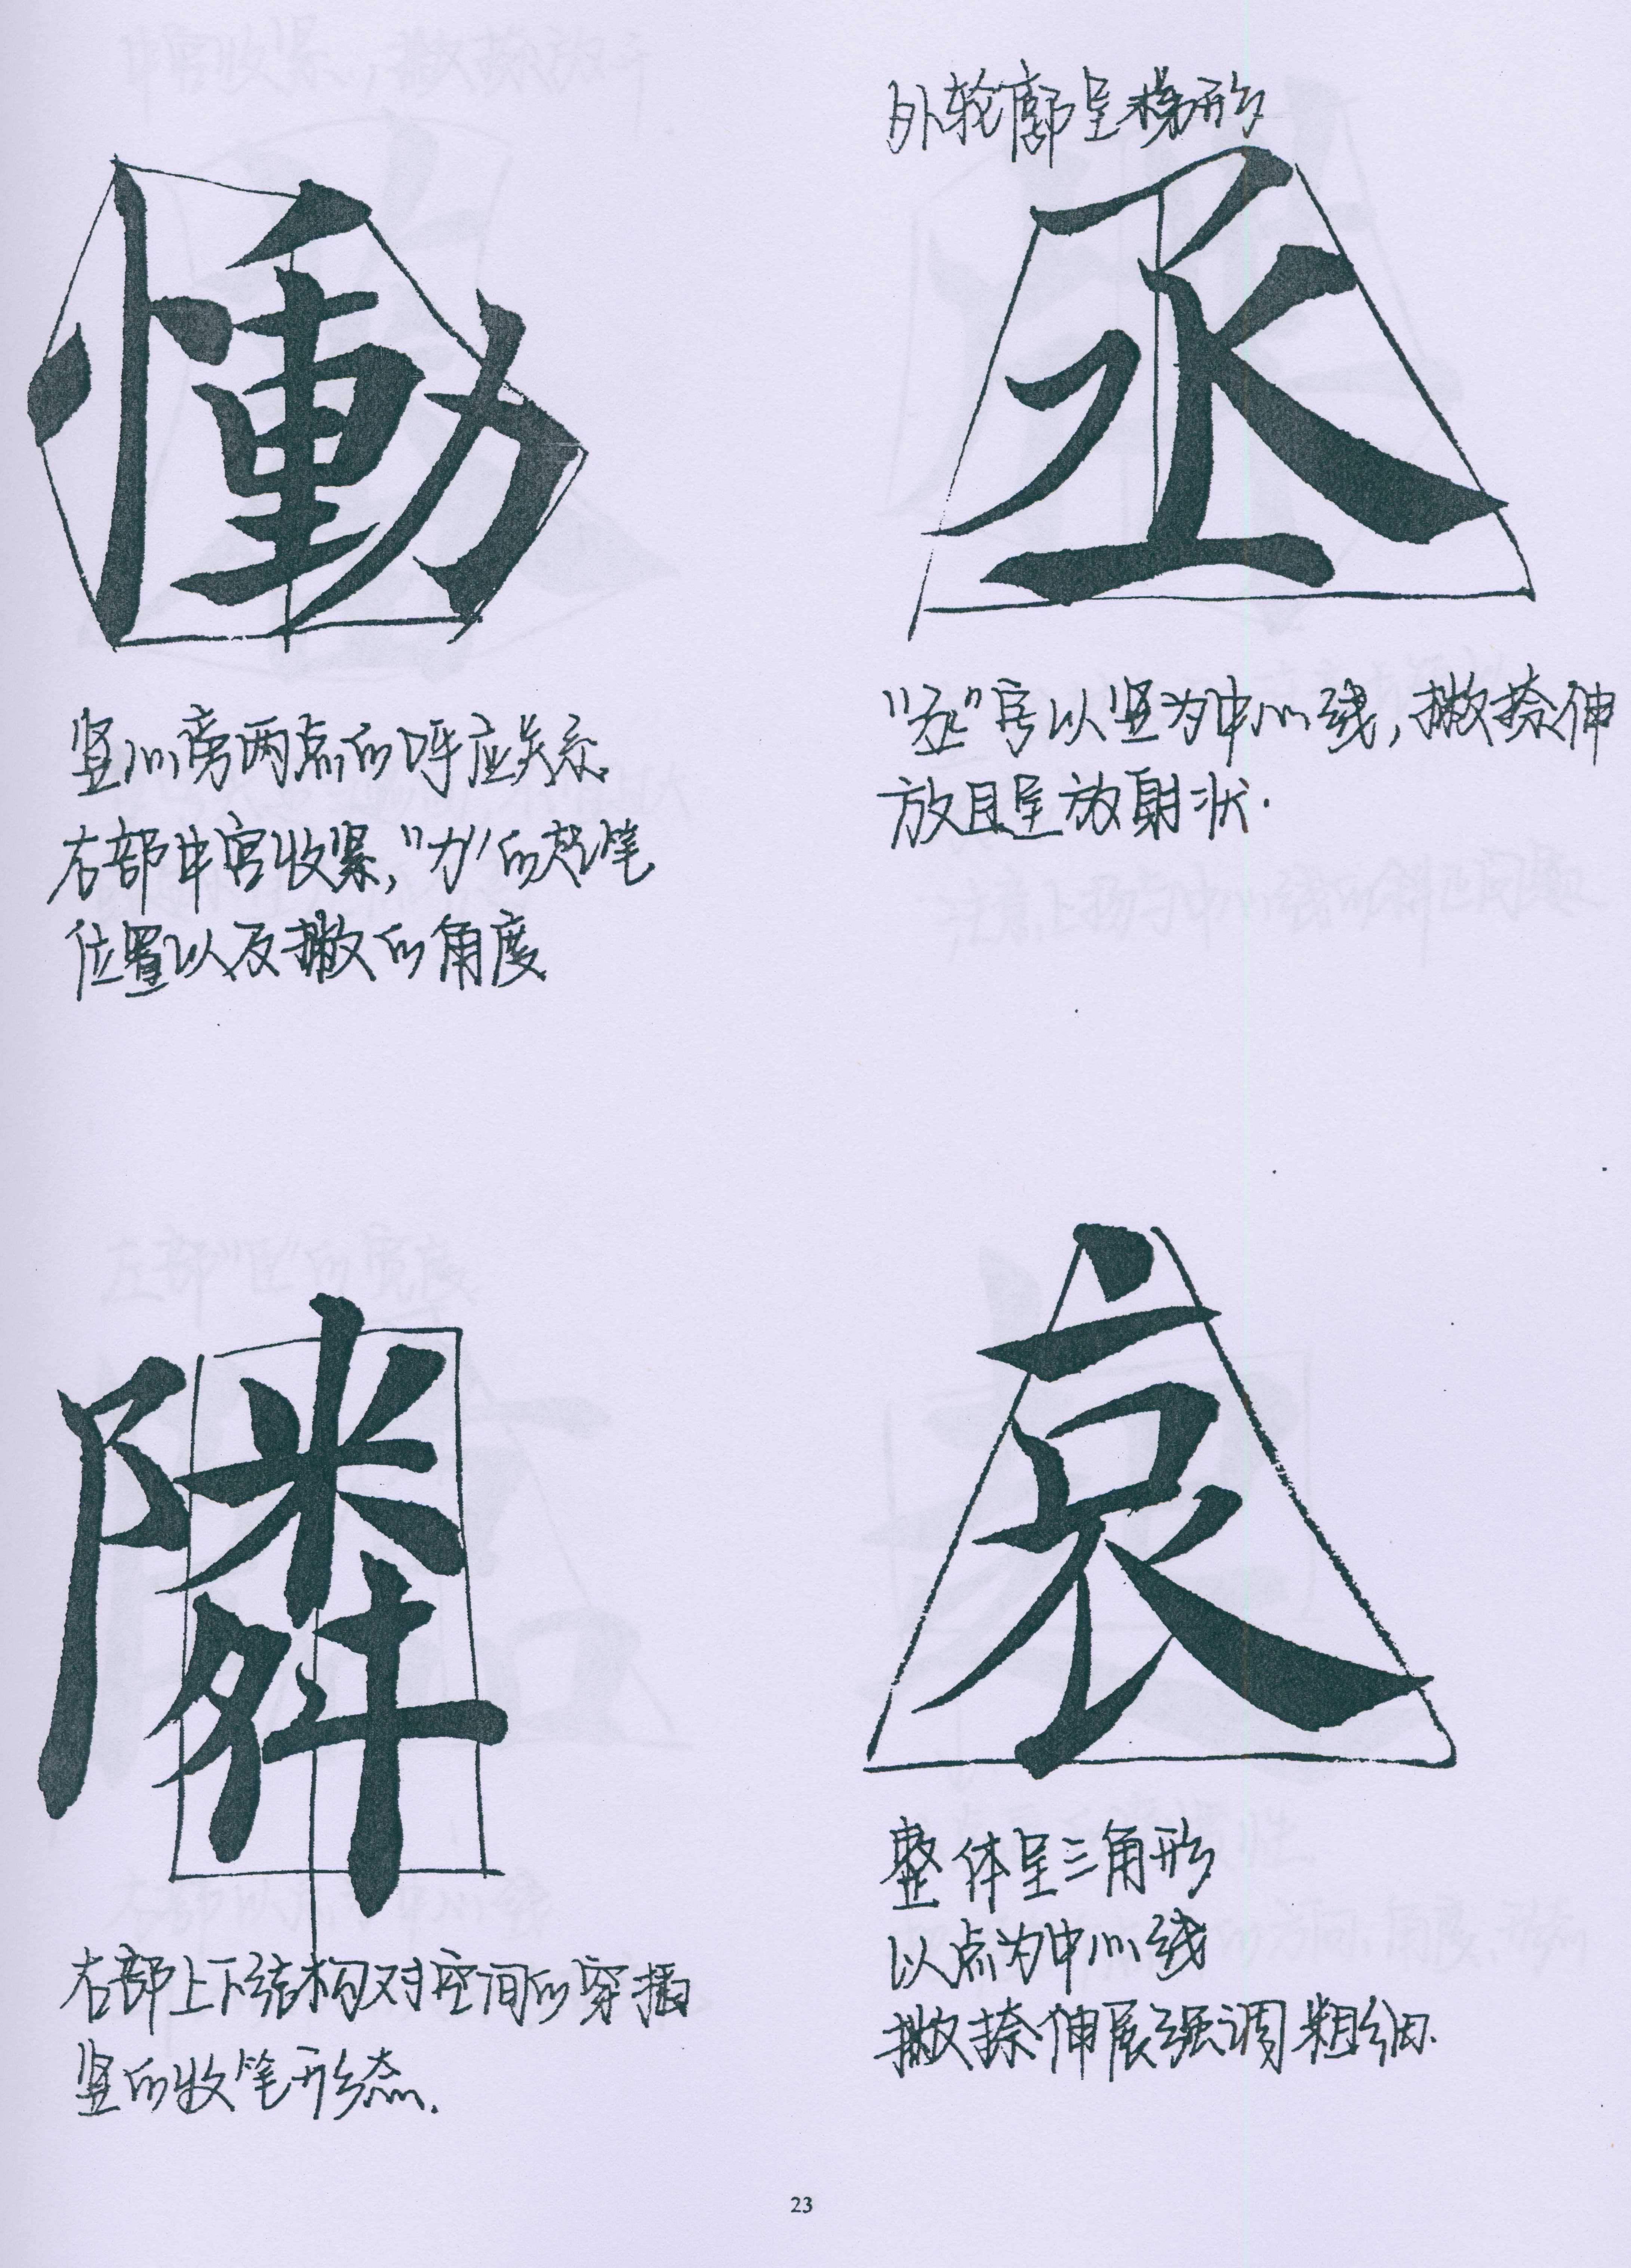 慟
竖心旁两点的呼应关系.
右部中宫收紧,“力”的起笔
位置以及撇的角度
外轮廓呈梯形
丞
“丞”字以竖为中心线,撇捺伸
放且呈放射状.
隣
右部上下结构对空间的穿插
竖的收笔形态.
哀
整体呈三角形
以点为中心线
撇捺伸展强调粗细.
23